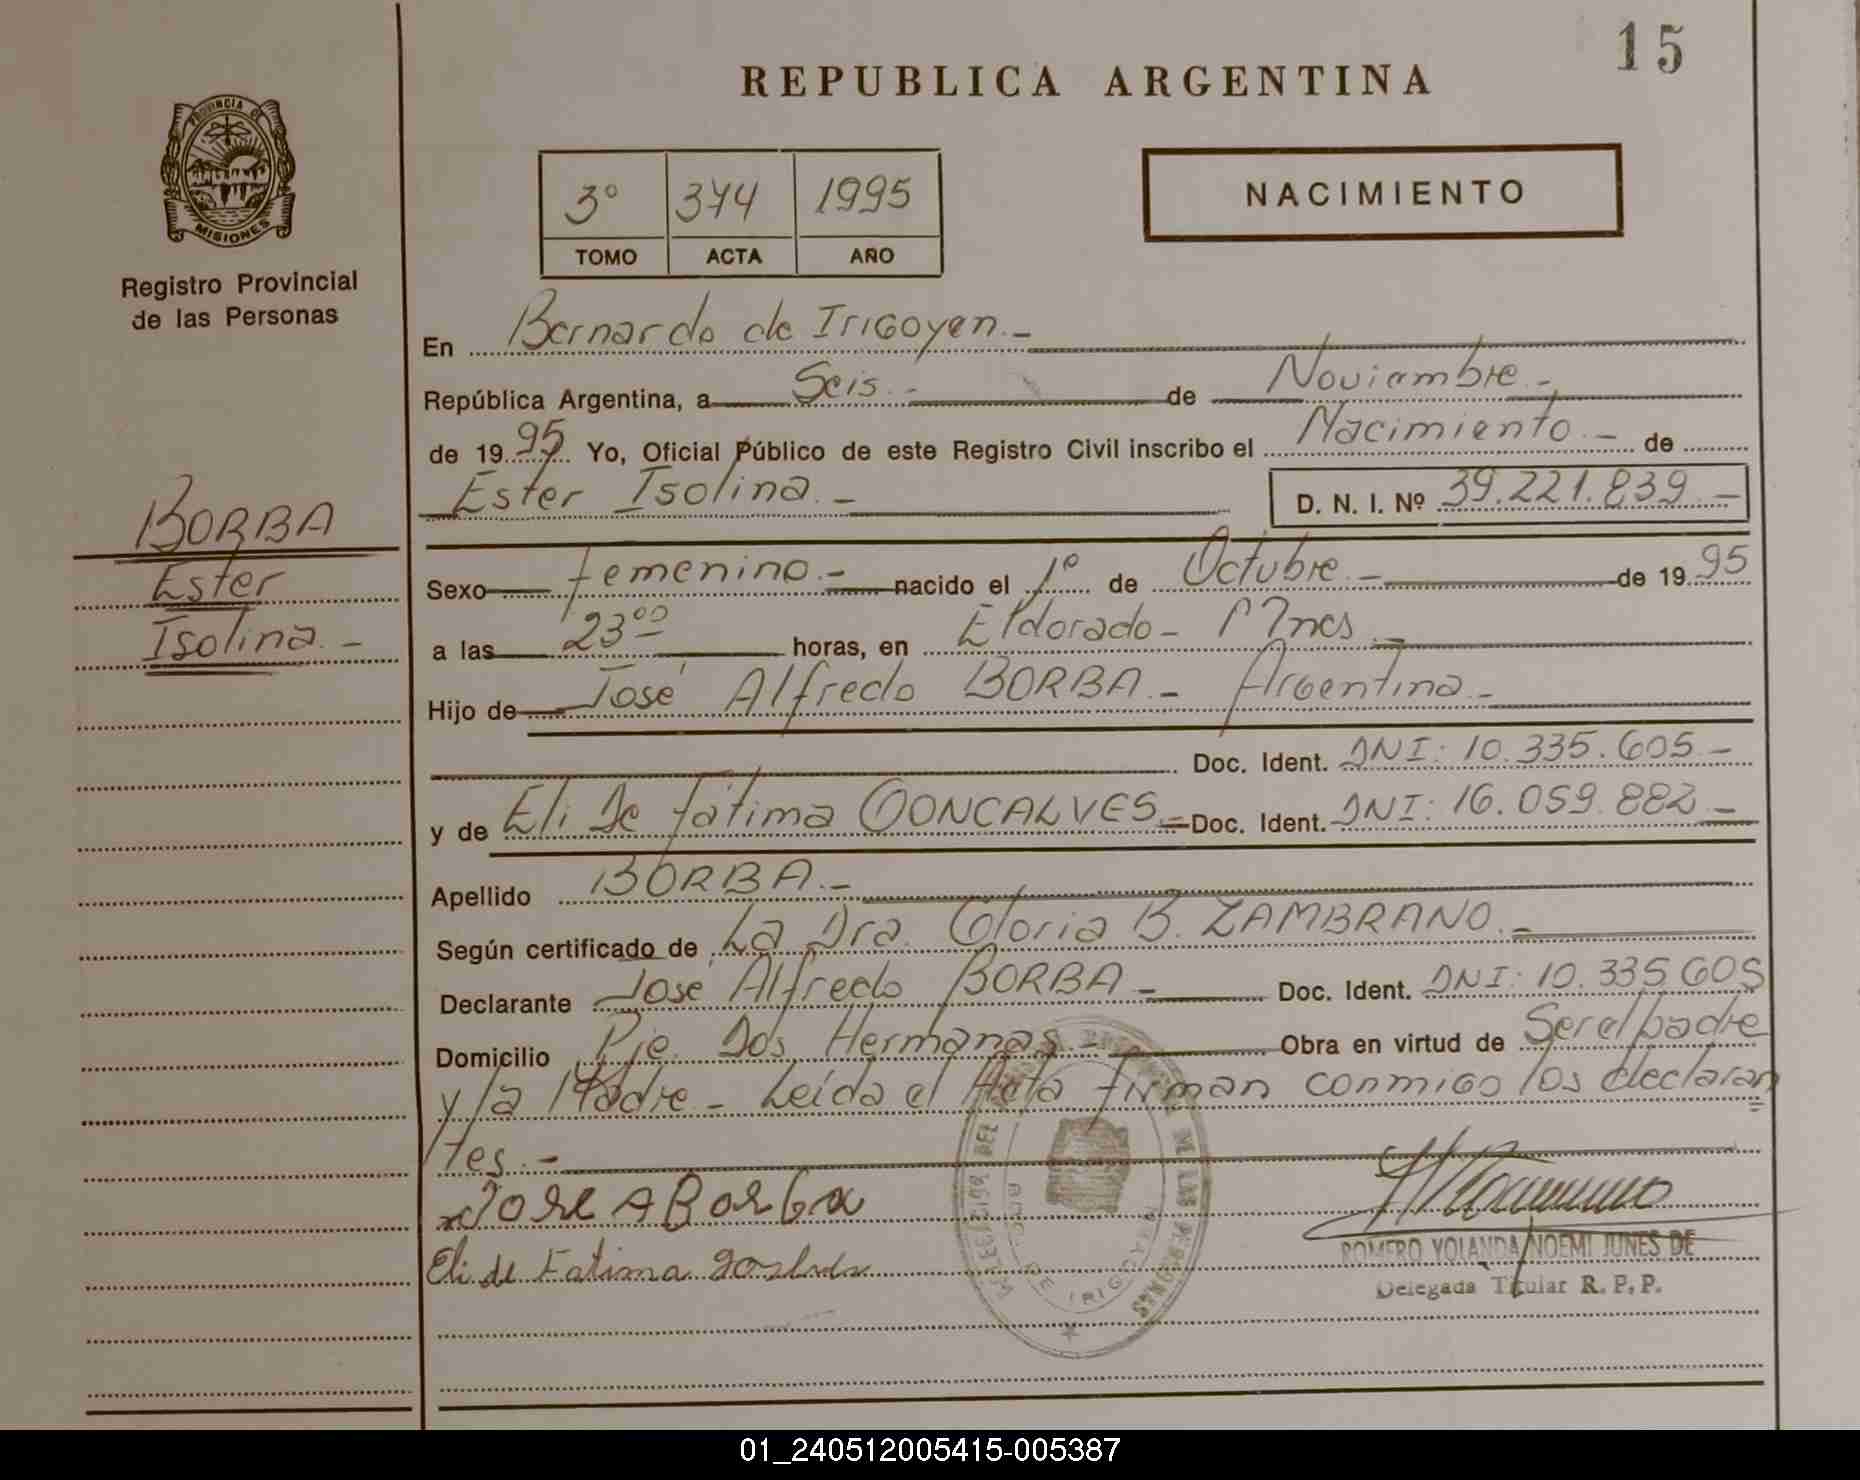 15
REPUBLICA ARGENTINA
PROVINCIA DE
MISIONES
Registro Provincial
de las Personas
3º 374 1995
TOMO ACTA AÑO
NACIMIENTO
En Bernardo de Irigoyen.-
República Argentina, a Seis.- de Noviembre.-
de 1995 Yo, Oficial Público de este Registro Civil inscribo el Nacimiento.- de
Ester Isolina.- D. N. I. Nº 39.221.839.-
BORBA
Ester
Isolina.-
Sexo femenino.- nacido el 1º de Octubre.- de 1995
a las 23⁰⁰ horas, en Eldorado- Mnes.-
Hijo de José Alfredo BORBA.- Argentina.-
Doc. Ident. DNI: 10.335.605.-
y de Eli De Fátima GONCALVES.- Doc. Ident. DNI: 16.059.882.-
Apellido BORBA.-
Según certificado de La Dra. Gloria B. ZAMBRANO.-
Declarante José Alfredo BORBA - Doc. Ident. DNI: 10.335.605
Domicilio Pje. Dos Hermanas.- Obra en virtud de Ser el padre
y la Madre - Leída el Acta firman conmigo los declaran
tes.-
JOSE A BORBA
Eli de Fatima
ROMERO YOLANDA NOEMI JUNES DE
Delegada Titular R. P. P.
DE LAS PERSONAS
DE IRIGOYEN
01_240512005415-005387